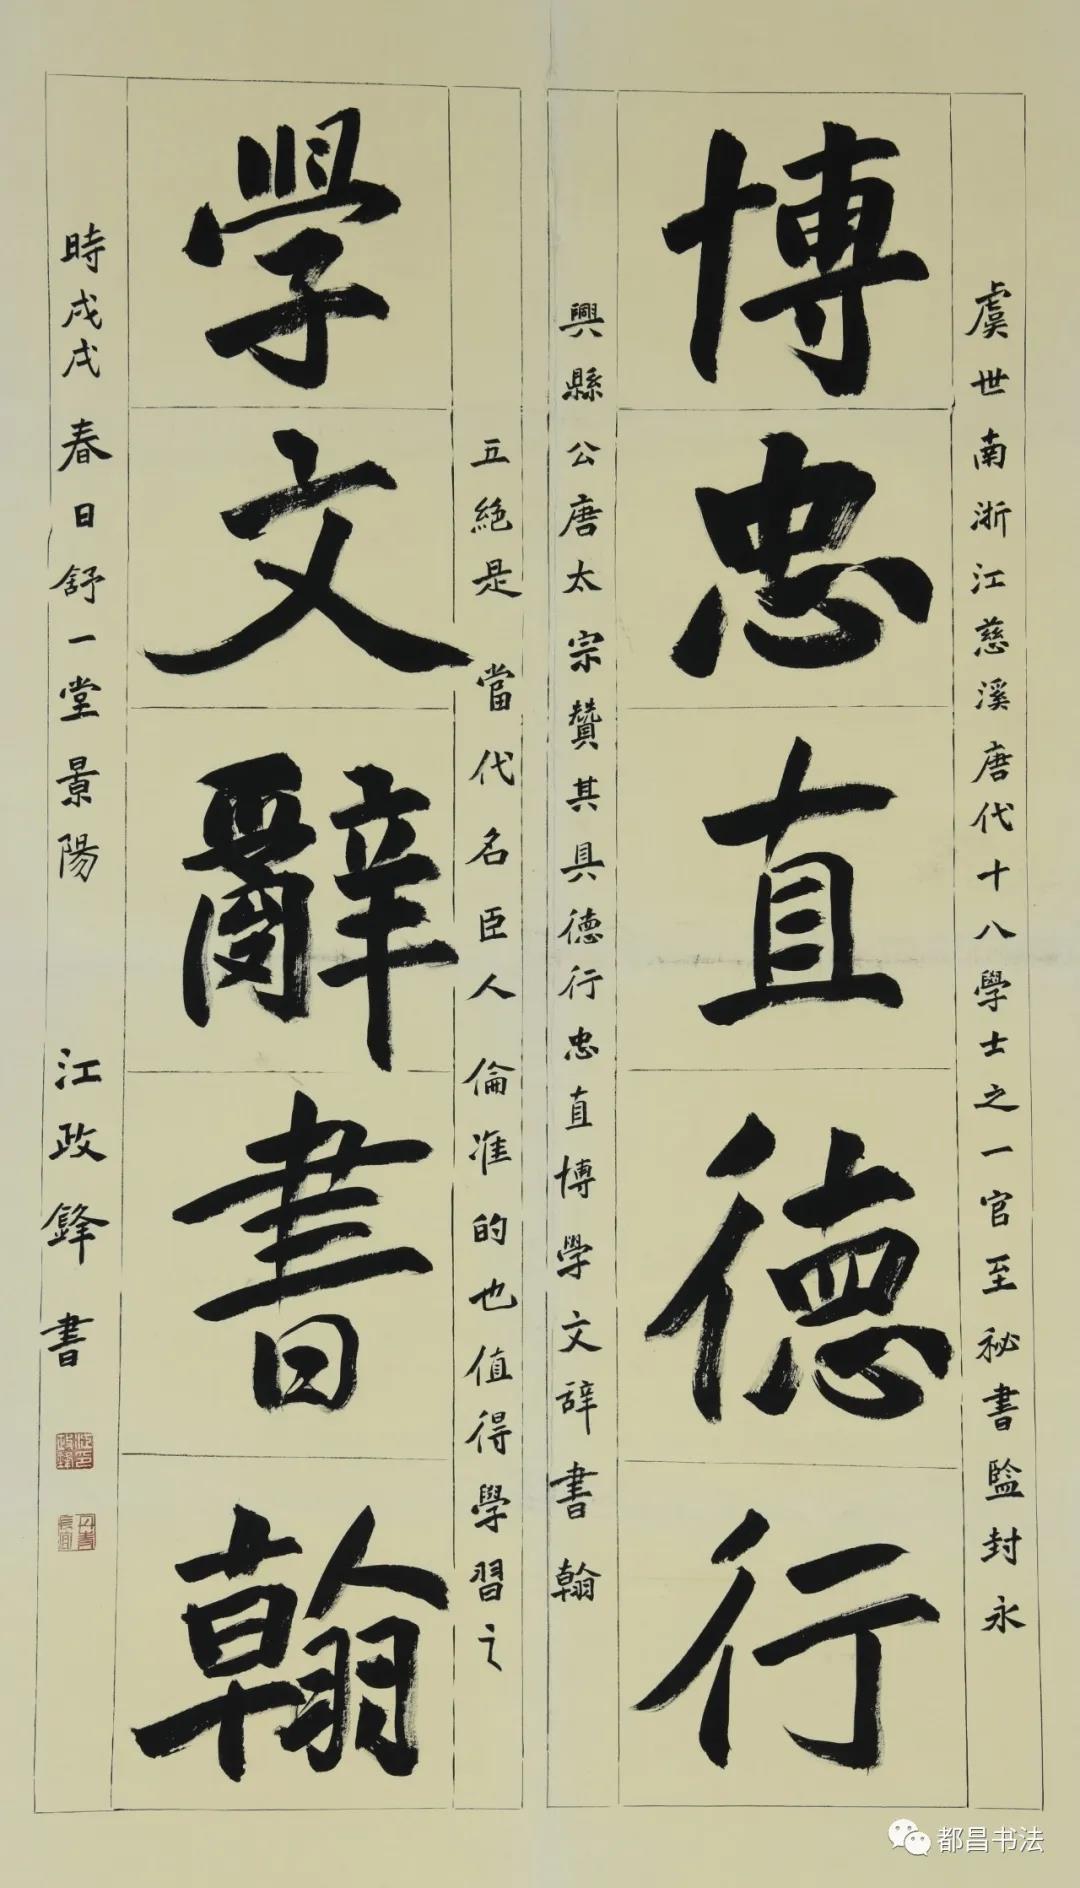 虞世南浙江慈溪唐代十八學士之一官至祕書監封永
博忠直德行
興縣公唐太宗贊其具德行忠直博學文辞書翰
五絕是當代名臣人倫准的也值得學習之
學文辭書翰
時戊戌春日舒一堂景陽江政鋒書
都昌书法